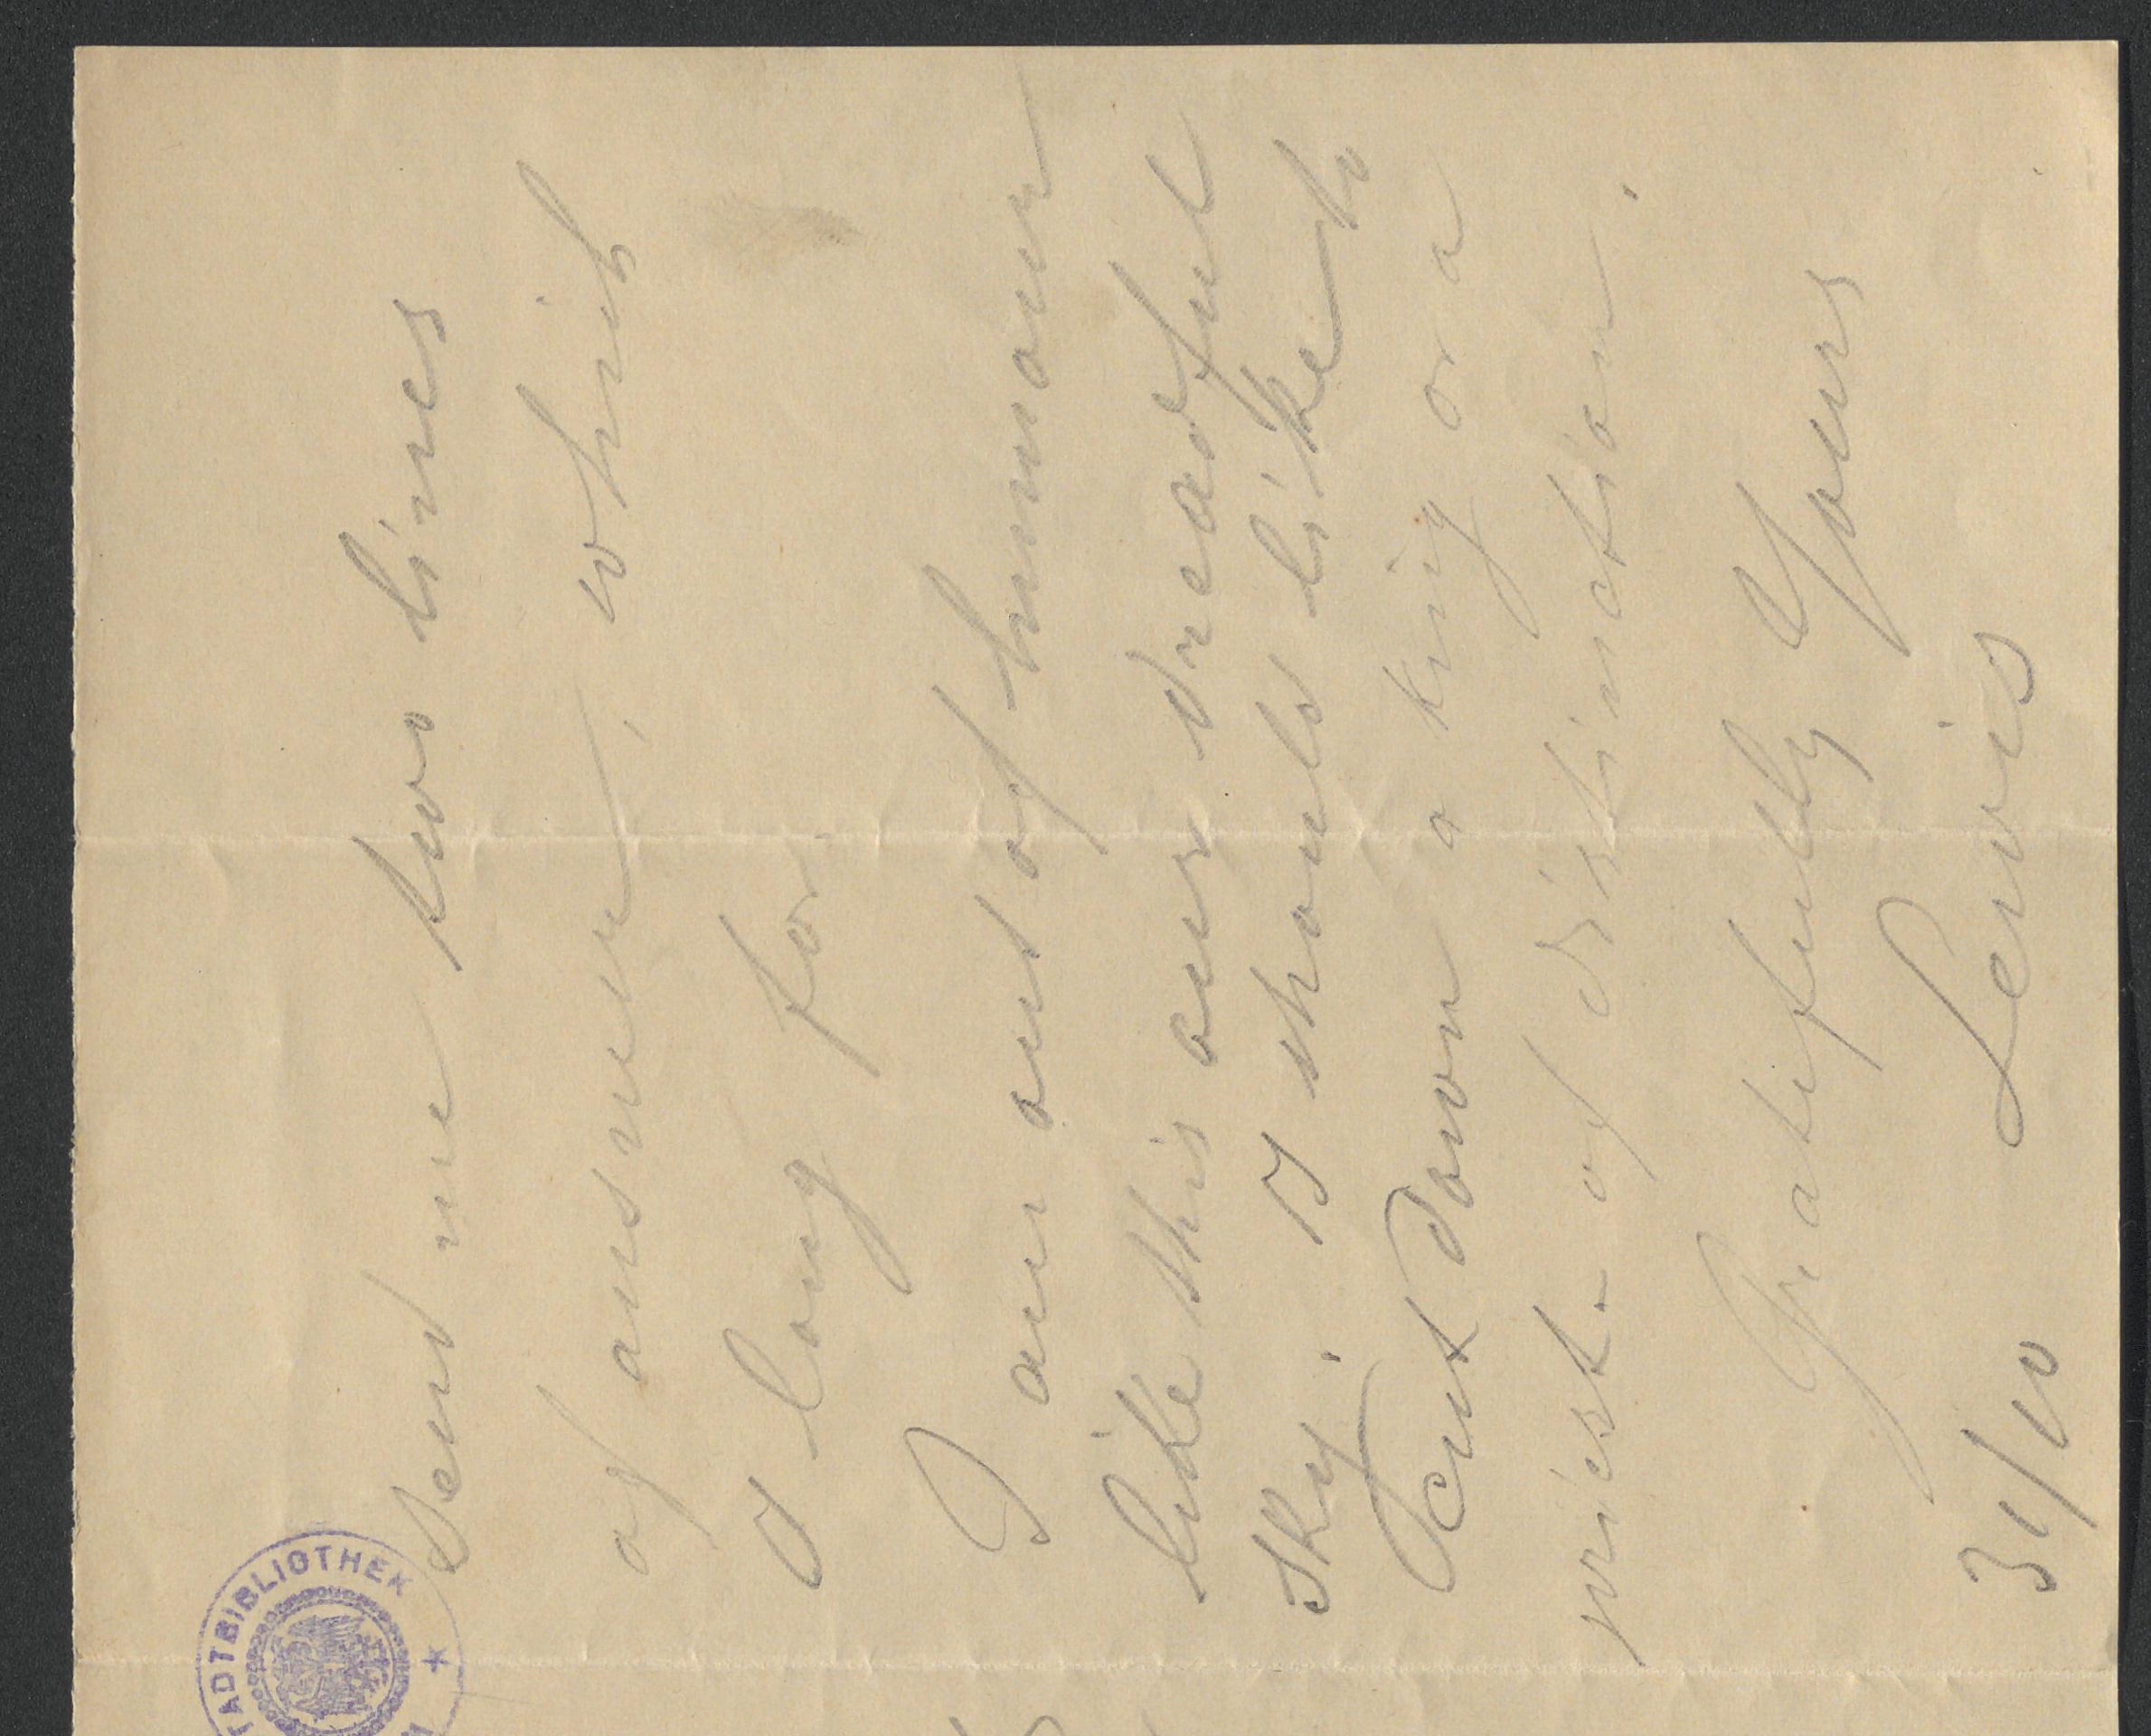 Send me two lines
of answer, which
I long for
I am out of humour
like this our dreadful
sky. I should like to
cut down a king or a
priest - of distinction.
Gratefully Yours
31/10 Lewis
STADTBIBLIOTHEK